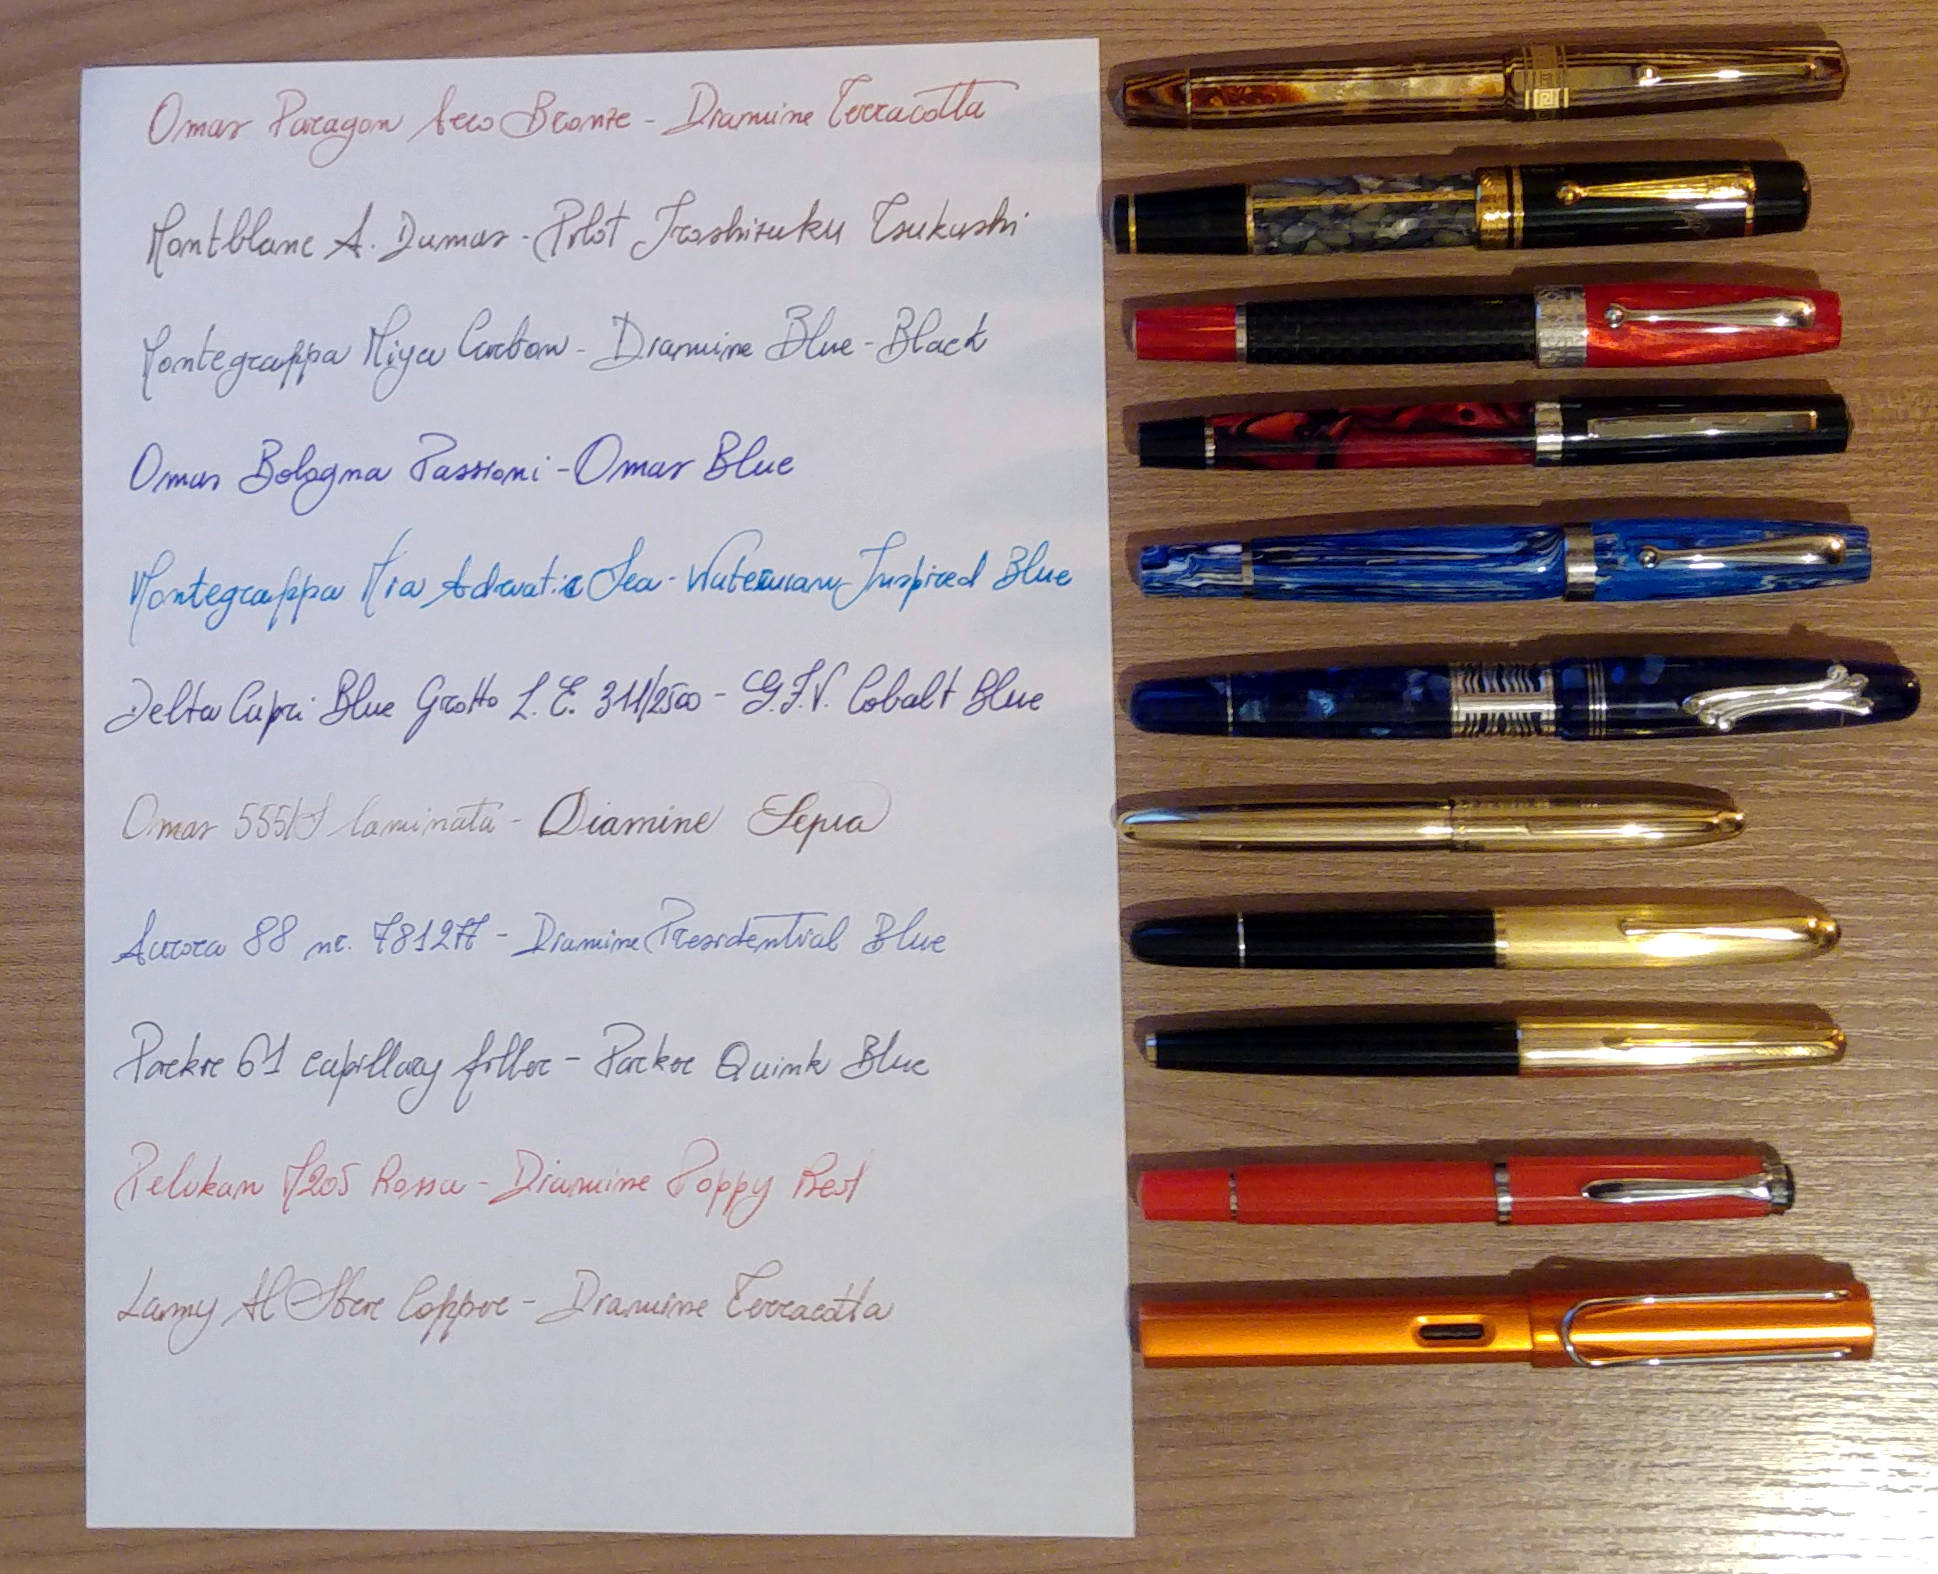 Omas Paragon Arco Bronze - Diamine Terracotta
Montblanc A. Dumas - Pilot Iroshizuku Tsukushi
Montegrappa Miya Carbon - Diamine Blue-Black
Omas Bologna Passioni - Omas Blue
Montegrappa Mia Adriatic Sea - Waterman Inspired Blue
Delta Capri Blue Grotto L.E. 311/2500 - G.F.V. Cobalt Blue
Omas 555/S laminata - Diamine Sepia
Aurora 88 nr. 781277 - Diamine Presidential Blue
Parker 61 capillary filler - Parker Quink Blue
Pelikan M205 Rossa - Diamine Poppy Red
Lamy Al Star Copper - Diamine Terracotta